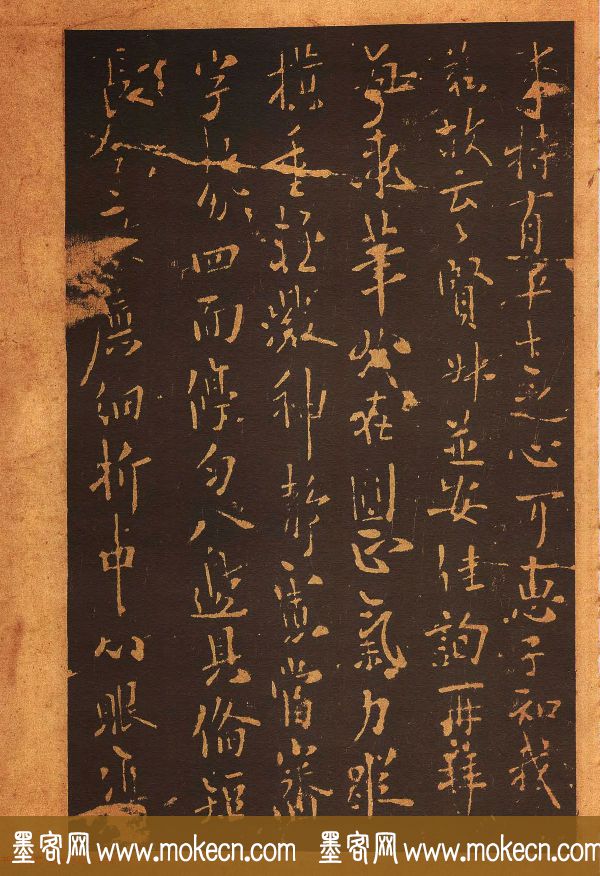 平生之心可惠于知我
故云云賢妹並安佳詢再拜
每秉筆必在圓正氣力縱
橫重輕凝神靜慮當審
字勢四面停勻八邊具備短
長合度麁細折中心眼准
墨客网 www.mokecn.com 墨客网 www.mokecn.com